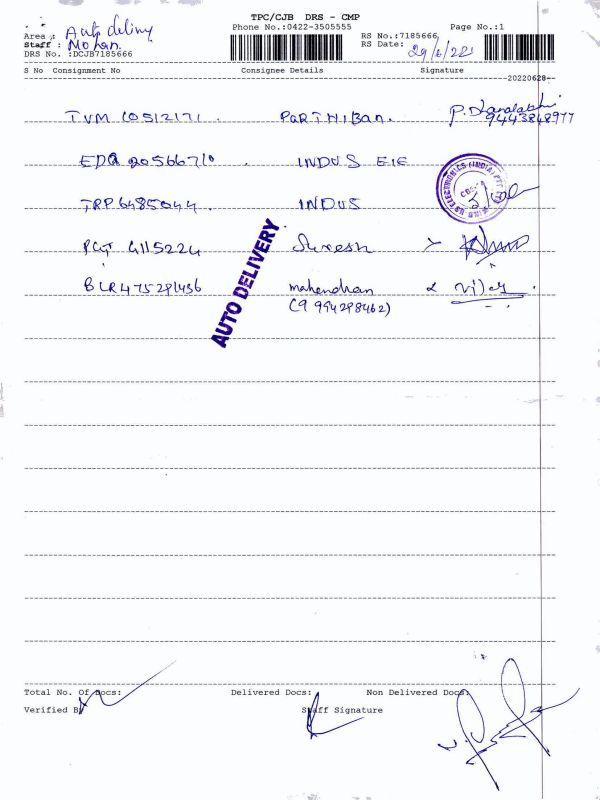 TPC/CJB DRS - CMP
Area : Auto delivery Phone No.:0422-3505555 Page No.:1
Staff : Mohan. RS No.:7185666
DRS No. :DCJB7185666 RS Date: 29/6/22
S No Consignment No Consignee Details Signature
20220628
TVM 10512171 . PARTHIBAN. P.
9443848977
EDQ 20566710 . INDUS EIE
TRP 6485044 . INDUS
AUTO DELIVERY
PGT 4115224 Suresh
BLR 475291436 mahendran
(9 994298462)
Total No. Of Docs: Delivered Docs: Non Delivered Docs:
Verified By Staff Signature